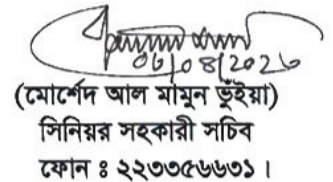 06/08/2026
(মোর্শেদ আল মামুন ভূঁইয়া)
সিনিয়র সহকারী সচিব
ফোন ঃ ২২৩৩৫৬৬৩১ ।